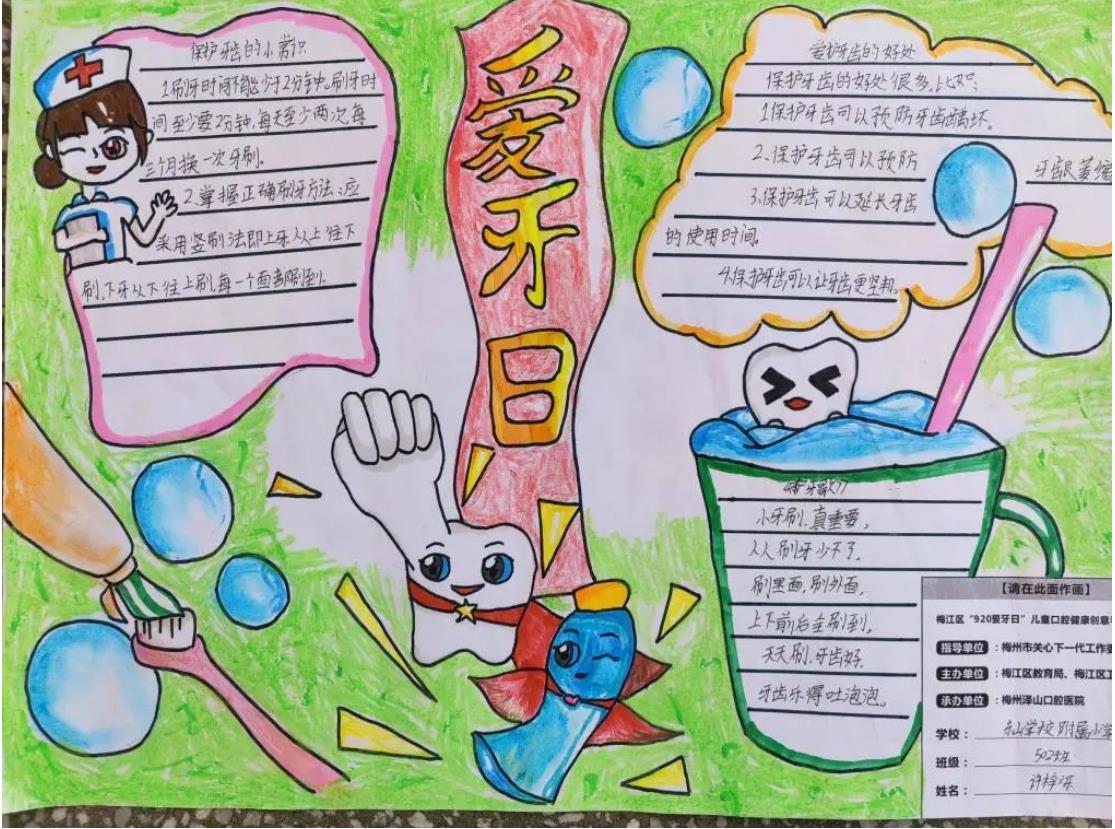 爱牙日
保护牙齿的小常识
1刷牙时间不能少于2分钟。刷牙时
间至少要2分钟,每天至少两次,每
三个月换一次牙刷。
2.掌握正确刷牙方法:应
采用竖刷法即上牙从上往下
刷,下牙从下往上刷,每一个面都刷到。
爱护牙齿的好处
保护牙齿的好处很多,比如:
1保护牙齿可以预防牙齿龋坏。
2.保护牙齿可以预防 牙龈萎缩
3.保护牙齿可以延长牙齿
的使用时间。
4.保护牙齿可以让牙齿更坚韧。
《护牙歌》
小牙刷,真重要,
人人刷牙少不了。
刷里面,刷外面,
上下前后全刷到。
天天刷,牙齿好
牙齿乐得吐泡泡。
【请在此面作画】
梅江区“920爱牙日”儿童口腔健康创意
指导单位:梅州市关心下一代工作委
主办单位:梅江区教育局、梅江区
承办单位:梅州泽山口腔医院
学校:东山学校附属小学
班级:502班
姓名:许梓